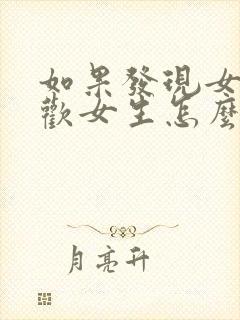 如果發現女
歡女生怎麼
月亮升